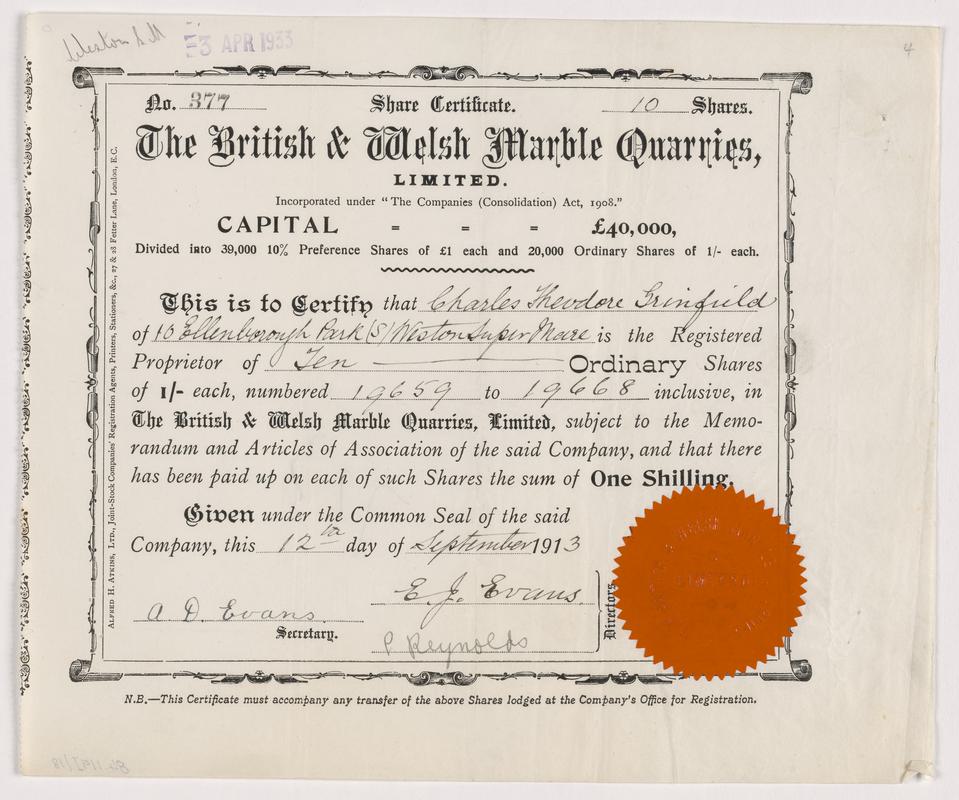 Weston S M
3 APR 1933
4
No. 377 Share Certificate. 10 Shares.
The British & Welsh Marble Quarries,
LIMITED.
Incorporated under "The Companies (Consolidation) Act, 1908."
CAPITAL = = = £40,000,
Divided into 39,000 10% Preference Shares of £1 each and 20,000 Ordinary Shares of 1/- each.
This is to Certify that Charles Theodore Grinfield
of 10 Ellenborough Park (S) Weston Super Mare is the Registered
Proprietor of Ten Ordinary Shares
of 1/- each, numbered 19659 to 19668 inclusive, in
The British & Welsh Marble Quarries, Limited, subject to the Memo-
randum and Articles of Association of the said Company, and that there
has been paid up on each of such Shares the sum of One Shilling.
Given under the Common Seal of the said
Company, this 12th day of September 1913
E. J. Evans.
A. D. Evans.
Secretary.
P Reynolds
Directors
LIMITED
N.B.—This Certificate must accompany any transfer of the above Shares lodged at the Company's Office for Registration.
ALFRED H. ATKINS, LTD., Joint-Stock Companies' Registration Agents, Printers, Stationers, &c., 27 & 28 Fetter Lane, London, E.C.